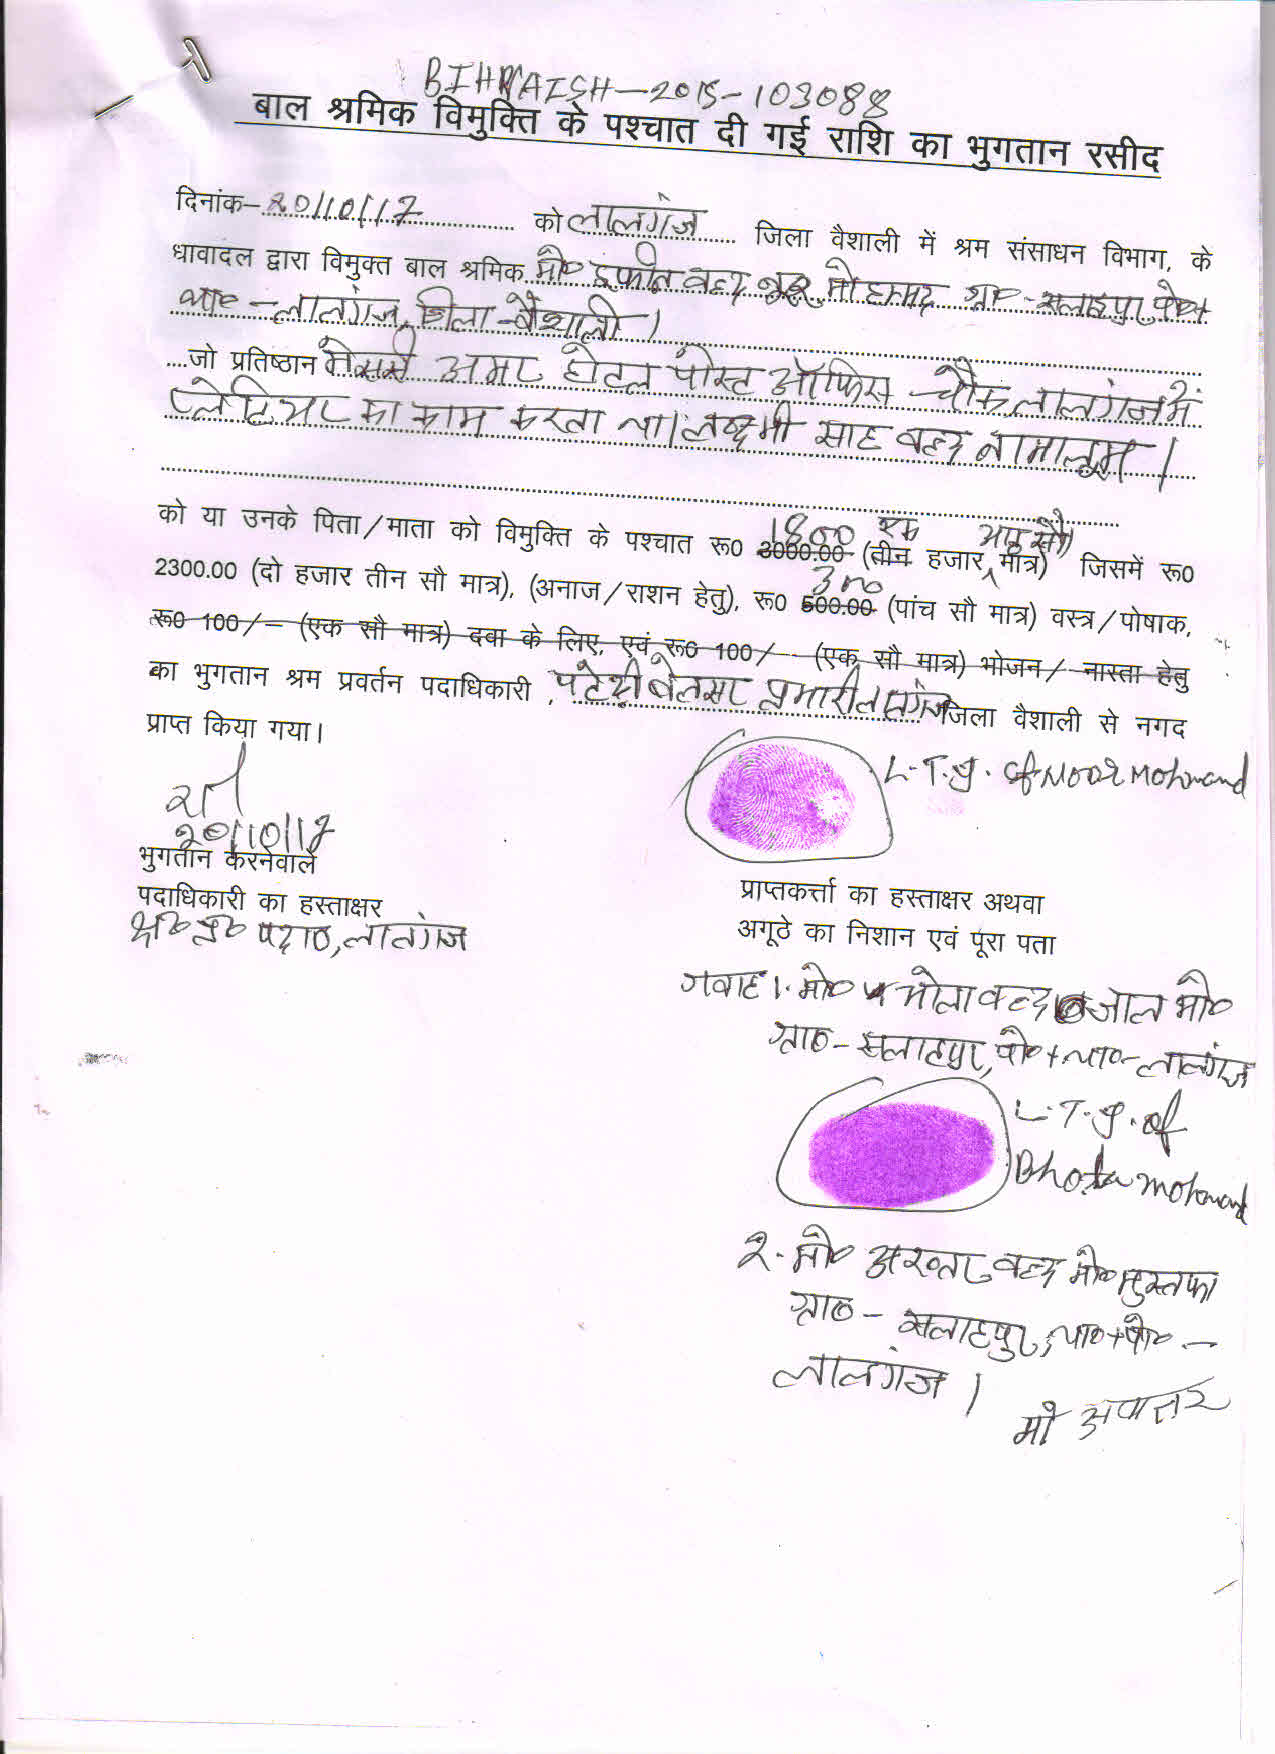 BIHVAISH-2015-103088
बाल श्रमिक विमुक्ति के पश्चात दी गई राशि का भुगतान रसीद
दिनांक- 20/10/17 को लालगंज जिला वैशाली में श्रम संसाधन विभाग, के
धावादल द्वारा विमुक्त बाल श्रमिक मो० इरफान वल्द नूर मोहम्मद ग्रा०-सलाहपुर, पो०+
था०-लालगंज, जिला-वैशाली।
जो प्रतिष्ठान मेसर्स अमर होटल पोस्ट ऑफिस-चौक लालगंज में
का काम करता था। लक्ष्मी साह वल्द नामालूम।
को या उनके पिता/माता को विमुक्ति के पश्चात रू0 3000.00 1800 (तीन एक हजार आठ सौ मात्र) जिसमें रू0
2300.00 (दो हजार तीन सौ मात्र), (अनाज/राशन हेतु), रू0 500.00 300 (पांच सौ मात्र) वस्त्र/पोषाक,
रू0 100/= (एक सौ मात्र) दवा के लिए, एवं रू0 100/- (एक सौ मात्र) भोजन/नास्ता हेतु
का भुगतान श्रम प्रवर्तन पदाधिकारी, पटेढ़ी बेलसर प्रभारी लालगंज जिला वैशाली से नगद
प्राप्त किया गया।
L.T.I. of Noor Mohmmad
20/10/17
भुगतान करनेवाले
पदाधिकारी का हस्ताक्षर
श्र० प्र० पदा०, लालगंज
प्राप्तकर्त्ता का हस्ताक्षर अथवा
अगूठे का निशान एवं पूरा पता
गवाह 1. मो० भोला वल्द जाल मो०
ग्रा०-सलाहपुर, पो०+था०-लालगंज
L.T.I. of
Bhola Mohmmad
2- मो० अख्तर वल्द मो० मुस्तफा
ग्रा०-सलाहपुर, था०+पो०-
लालगंज।
मो